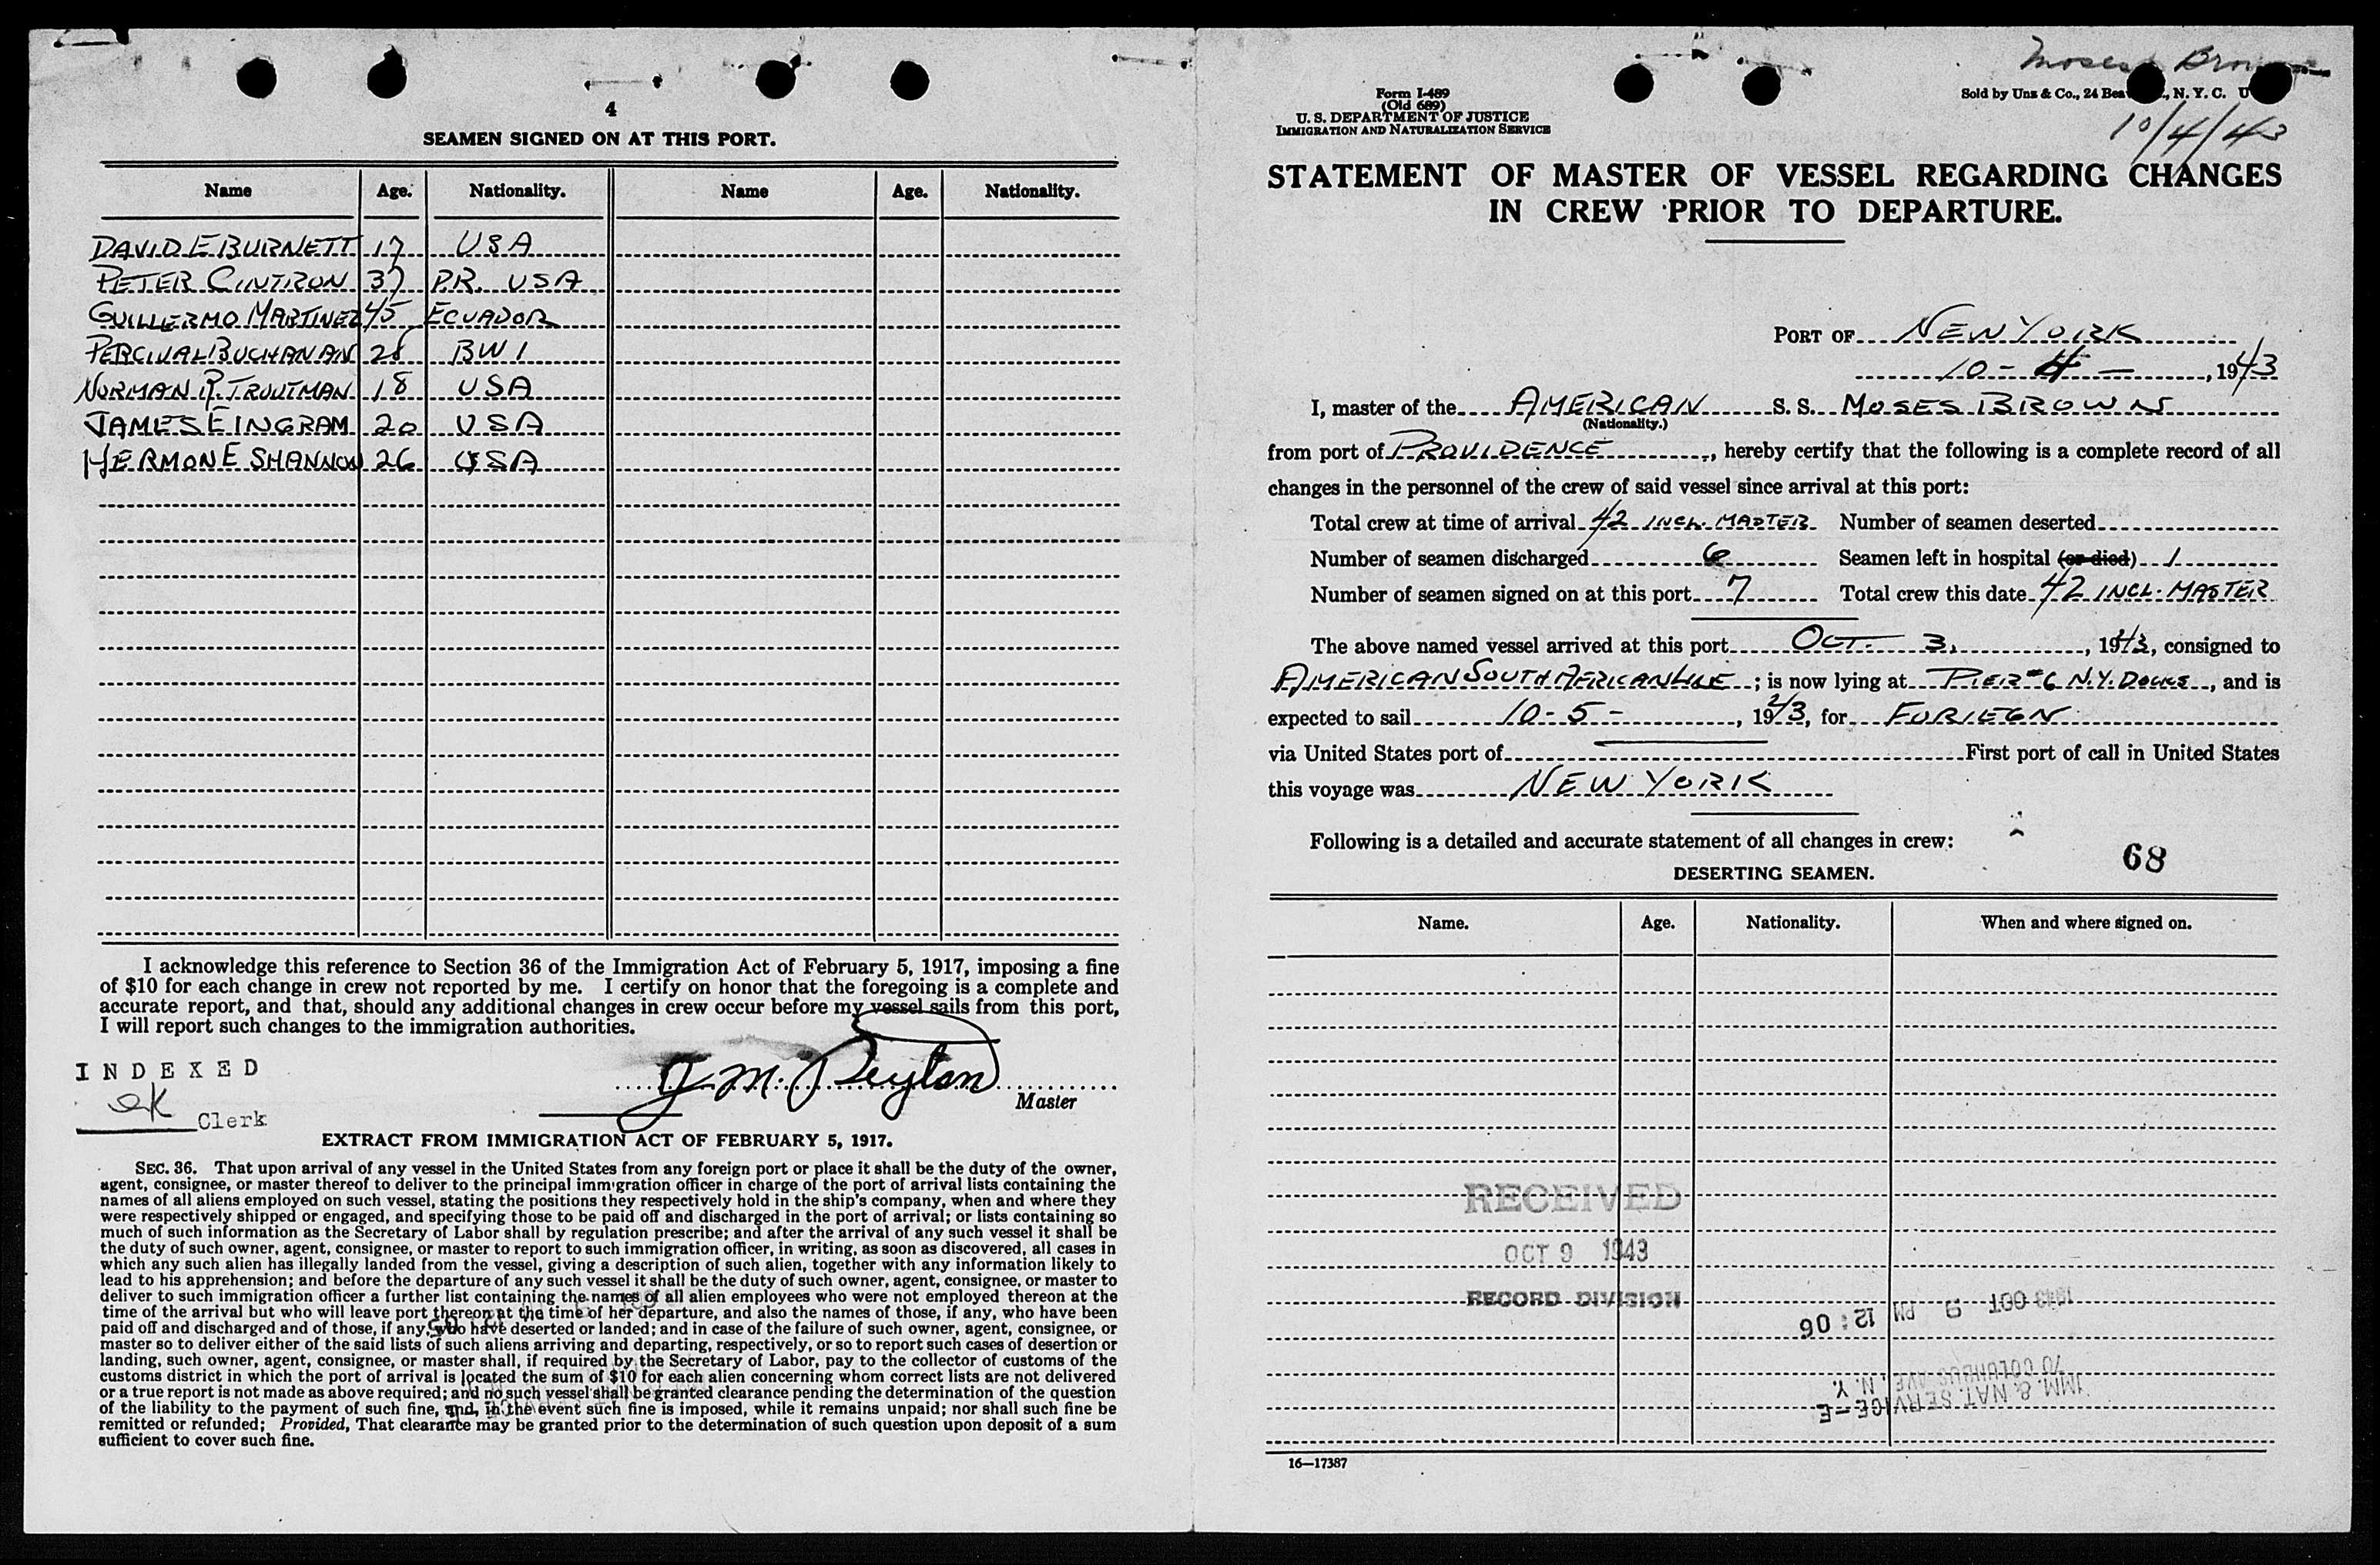 4
SEAMEN SIGNED ON AT THIS PORT.
Name Age. Nationality. Name Age. Nationality.
DAVID E BURNETT 17 USA
PETER CINTRON 37 P.R. USA
GUILLERMO MARTINEZ 45 ECUADOR
PERCIVAL BUCHANAN 28 BWI
NORMAN R. TROUTMAN 18 USA
JAMES E INGRAM 20 USA
HERMON E SHANNON 26 USA
I acknowledge this reference to Section 36 of the Immigration Act of February 5, 1917, imposing a fine
of $10 for each change in crew not reported by me. I certify on honor that the foregoing is a complete and
accurate report, and that, should any additional changes in crew occur before my vessel sails from this port,
I will report such changes to the immigration authorities.
INDEXED
J. M. Peyton
Master
ek Clerk
EXTRACT FROM IMMIGRATION ACT OF FEBRUARY 5, 1917.
SEC. 36. That upon arrival of any vessel in the United States from any foreign port or place it shall be the duty of the owner,
agent, consignee, or master thereof to deliver to the principal immigration officer in charge of the port of arrival lists containing the
names of all aliens employed on such vessel, stating the positions they respectively hold in the ship's company, when and where they
were respectively shipped or engaged, and specifying those to be paid off and discharged in the port of arrival; or lists containing so
much of such information as the Secretary of Labor shall by regulation prescribe; and after the arrival of any such vessel it shall be
the duty of such owner, agent, consignee, or master to report to such immigration officer, in writing, as soon as discovered, all cases in
which any such alien has illegally landed from the vessel, giving a description of such alien, together with any information likely to
lead to his apprehension; and before the departure of any such vessel it shall be the duty of such owner, agent, consignee, or master to
deliver to such immigration officer a further list containing the names of all alien employees who were not employed thereon at the
time of the arrival but who will leave port thereon at the time of her departure, and also the names of those, if any, who have been
paid off and discharged and of those, if any, who have deserted or landed; and in case of the failure of such owner, agent, consignee, or
master so to deliver either of the said lists of such aliens arriving and departing, respectively, or so to report such cases of desertion or
landing, such owner, agent, consignee, or master shall, if required by the Secretary of Labor, pay to the collector of customs of the
customs district in which the port of arrival is located the sum of $10 for each alien concerning whom correct lists are not delivered
or a true report is not made as above required; and no such vessel shall be granted clearance pending the determination of the question
of the liability to the payment of such fine, and, in the event such fine is imposed, while it remains unpaid; nor shall such fine be
remitted or refunded; Provided, That clearance may be granted prior to the determination of such question upon deposit of a sum
sufficient to cover such fine.
Moses
Form I-489
(Old 689)
U. S. DEPARTMENT OF JUSTICE
IMMIGRATION AND NATURALIZATION SERVICE
Sold by Unz & Co., 24 , N. Y. C.
10/4/43
STATEMENT OF MASTER OF VESSEL REGARDING CHANGES
IN CREW PRIOR TO DEPARTURE.
PORT OF NEW YORK
10 - 4 - , 1943
I, master of the AMERICAN S. S. MOSES BROWN
(Nationality.)
from port of PROVIDENCE, hereby certify that the following is a complete record of all
changes in the personnel of the crew of said vessel since arrival at this port:
Total crew at time of arrival 42 INCL. MASTER Number of seamen deserted
Number of seamen discharged 6 Seamen left in hospital (or died) 1
Number of seamen signed on at this port 7 Total crew this date 42 INCL. MASTER
The above named vessel arrived at this port OCT. 3, , 1943, consigned to
AMERICAN SOUTH AFRICAN LINE ; is now lying at PIER #6 N.Y. DOCKS, and is
expected to sail 10-5- , 1943, for FORIEGN
via United States port of First port of call in United States
this voyage was NEW YORK
Following is a detailed and accurate statement of all changes in crew:
68
DESERTING SEAMEN.
Name. Age. Nationality. When and where signed on.
RECEIVED
OCT 9 1943
RECORD DIVISION
1943 OCT 9 PM 12:06
IMM. & NAT. SERVICE-E
70 COLUMBUS AVE., N. Y.
16—17387